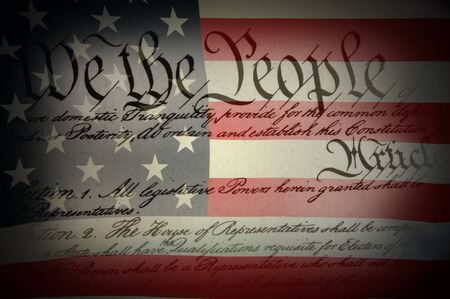 We the People
domestic Tranquility, provide for the common
and our Posterity, do ordain and establish this Constitution
Article
Section. 1. All legislative Powers herein granted shall be
Representatives.
Section. 2. The House of Representatives shall be
State shall have the Qualifications requisite for Electors of
No Person shall be a Representative who shall not